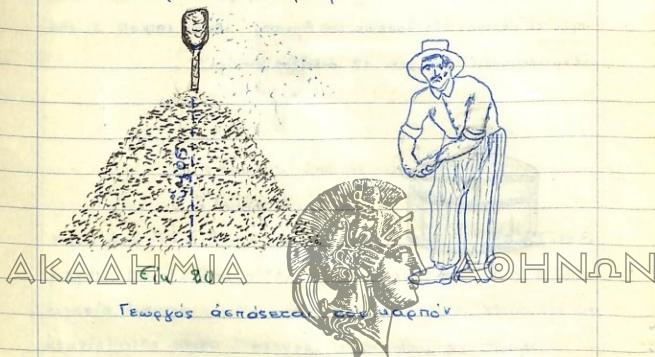 ΑΚΑΔΗΜΙΑ ΑΘΗΝΩΝ
Εικ
Γεωργός ἀσπάζεται τον καρπόν